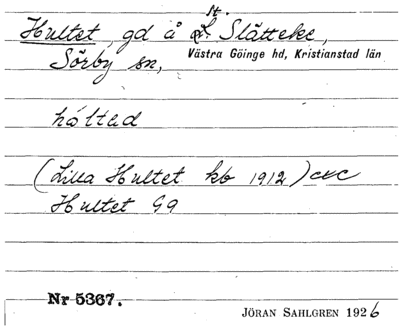 St.
Hultet, gd å L. Slätteke,
Sörby sn, Västra Göinge hd, Kristianstad län
håltad
(Lilla Hultet kb 1912)
Hultet G9
Nr 5367.
JÖRAN SAHLGREN 1926